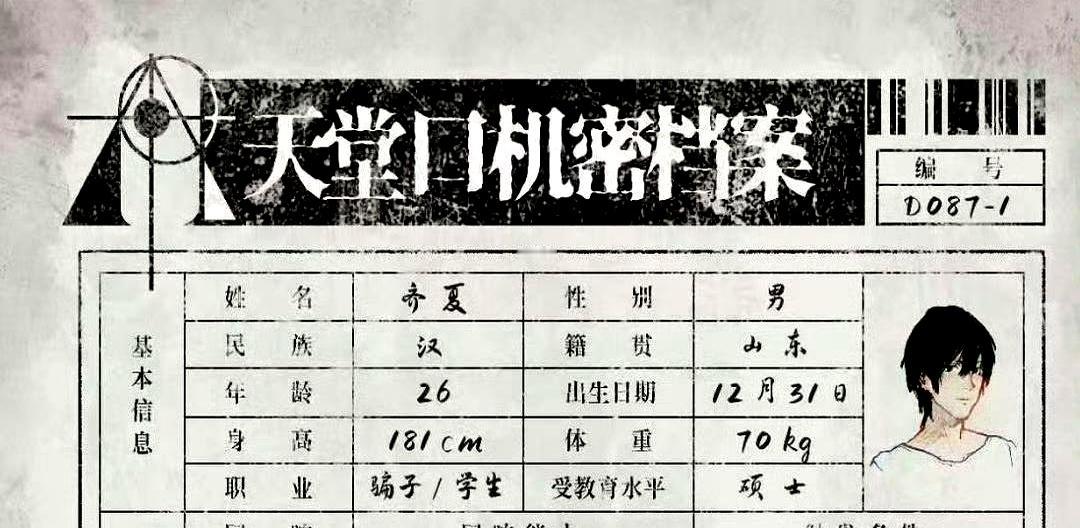 天堂口机密档案
编 号
D087-1
基本信息
姓 名 齐夏 性 别 男
民 族 汉 籍 贯 山东
年 龄 26 出生日期 12月31日
身 高 181cm 体 重 70kg
职 业 骗子/学生 受教育水平 硕士